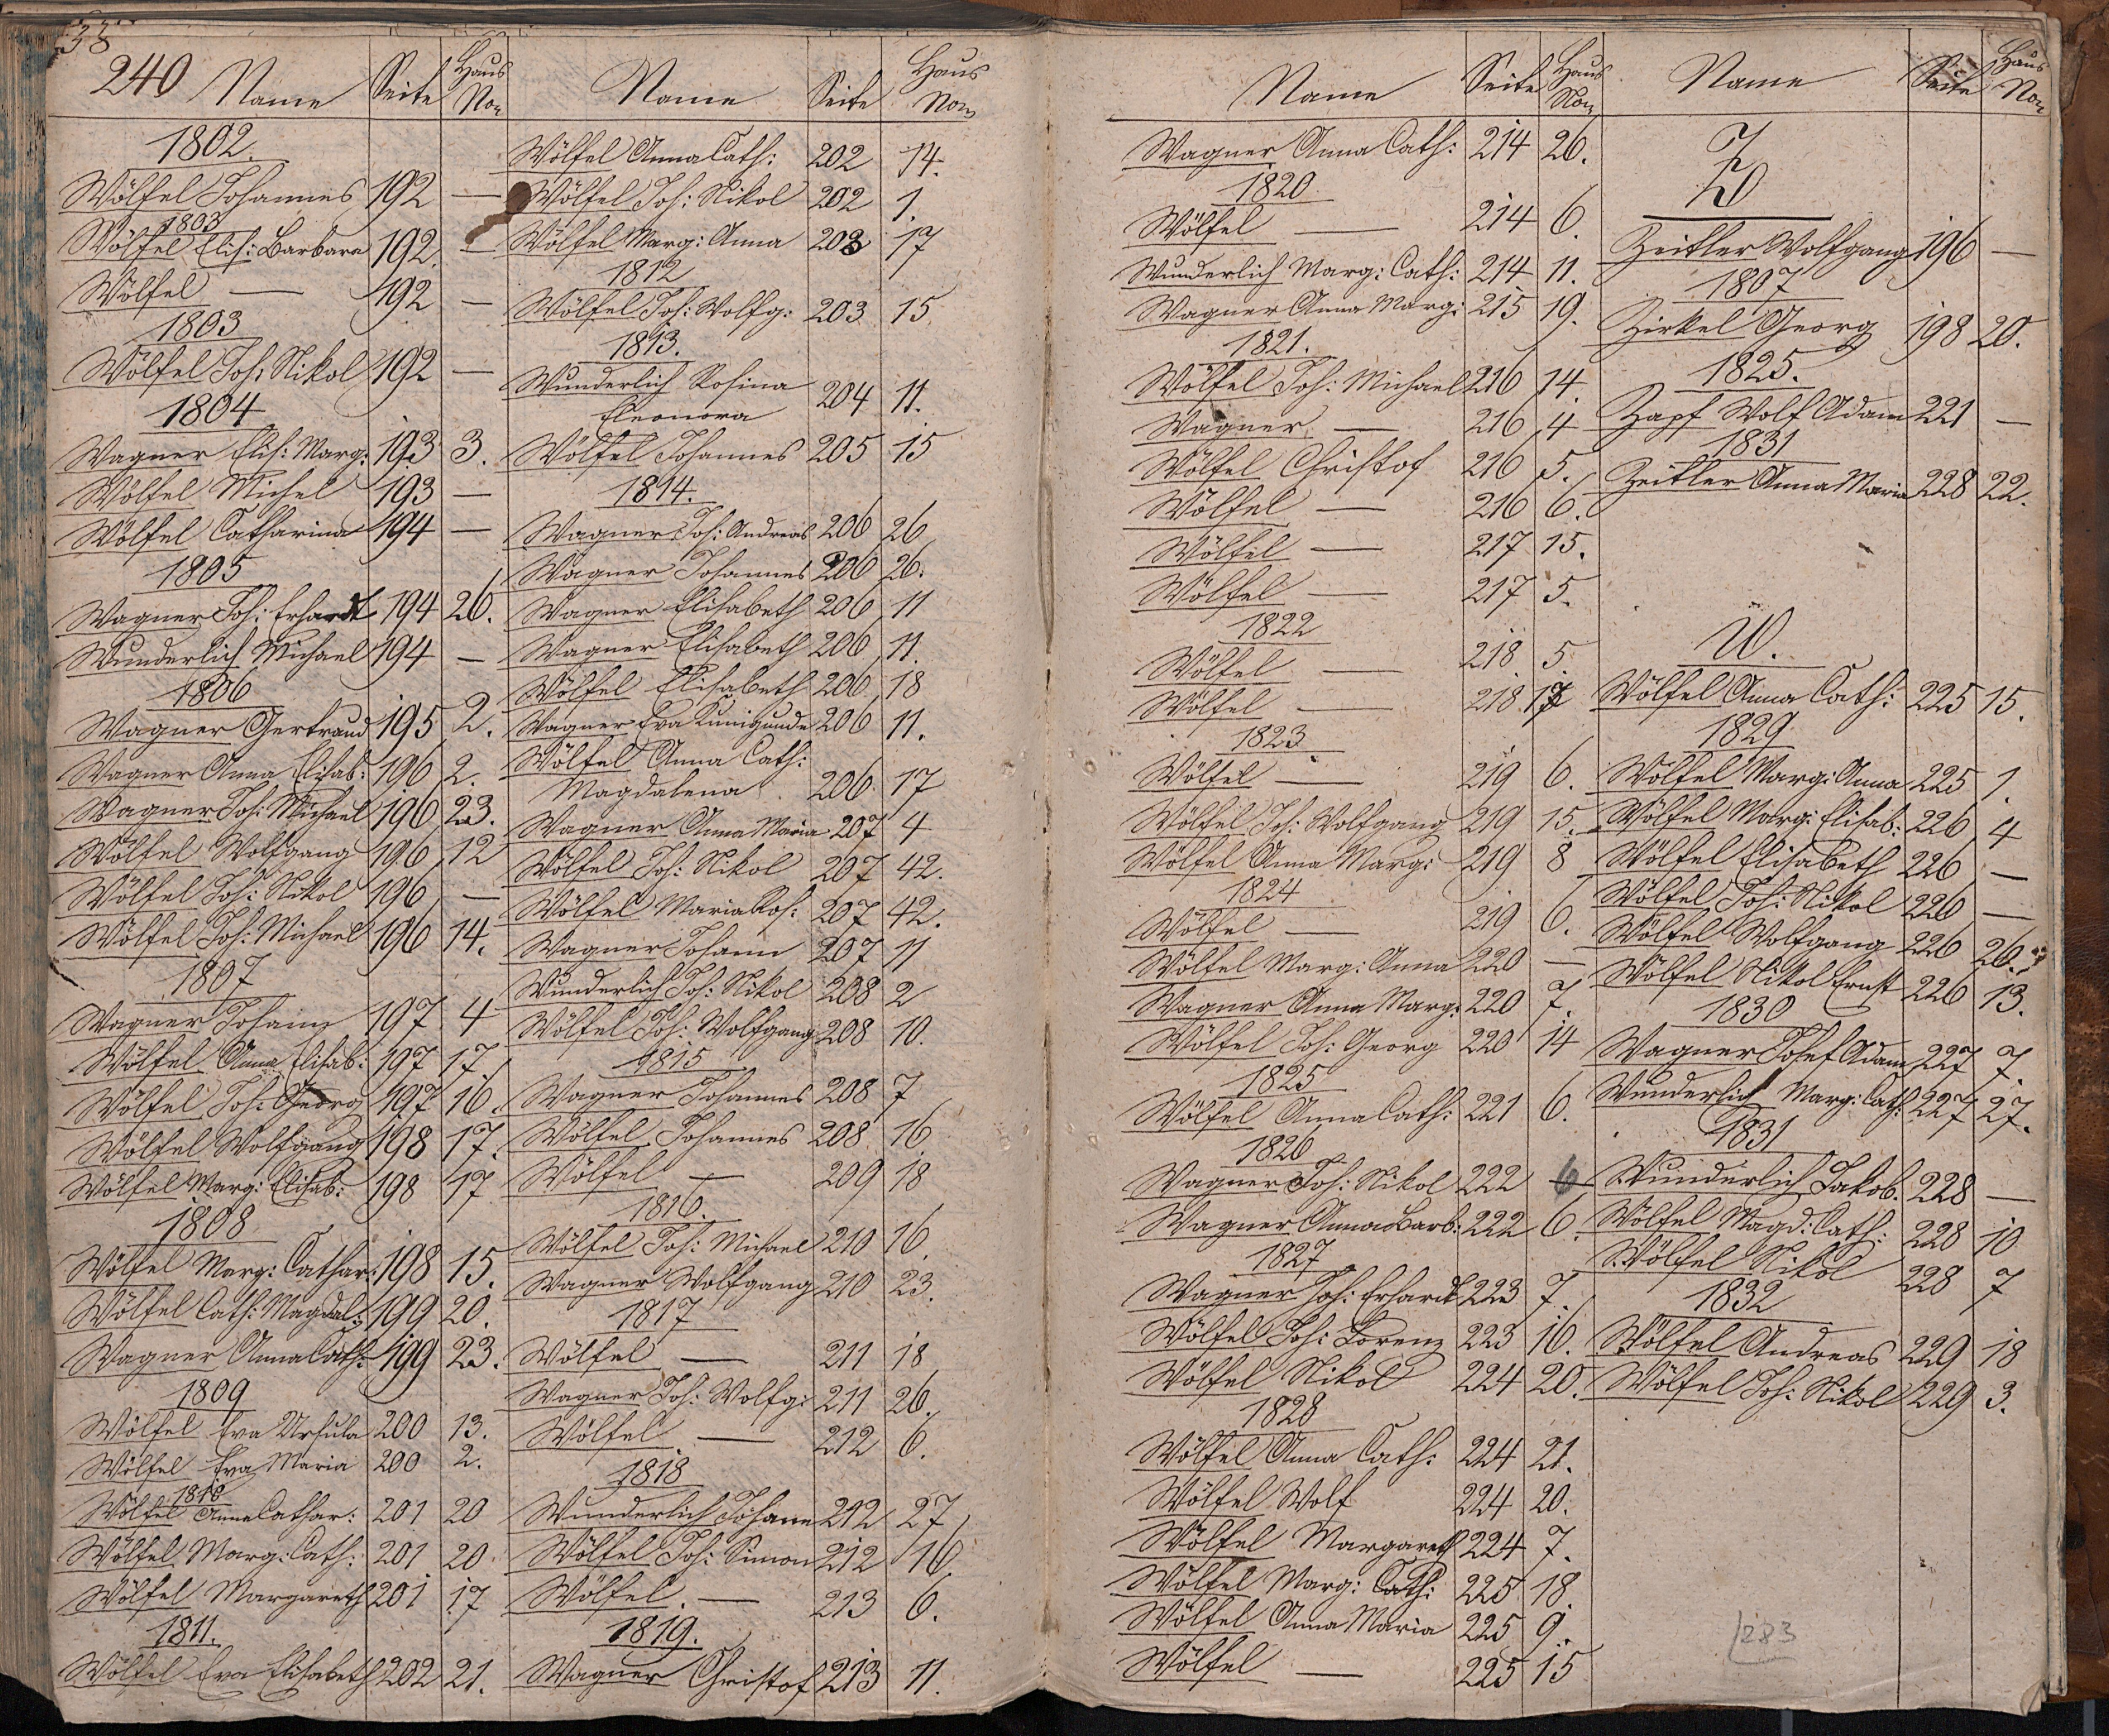 38
240 Name Seite Haus Nor
1802.
Wölfel Johannes 192 —
1803
Wölfel Elis: Barbara 192. —
Wölfel — 192 —
1803
Wölfel Joh: Nikol 192 —
1804
Wagner Elis: Marg: 193 3.
Wölfel Michel 193 —
Wölfel Catharina 194 —
1805
Wagner Joh: Erhardt 194 26.
Wunderlich Michael 194 —
1806
Wagner Gertraud 195 2.
Wagner Anna Elisab: 196 2.
Wagner Joh: Michael 196 23.
Wölfel Wolfgang 196 12
Wölfel Joh: Nikol 196 —
Wölfel Joh: Michael 196 14.
1807
Wagner Johann 197 4
Wölfel Anna Elisab: 197 17.
Wölfel Joh: Georg 197 16.
Wölfel Wolfgang 198 17.
Wölfel Marg: Elisab: 198 17
1808
Wölfel Marg: Cathar: 198 15.
Wölfel Cath: Magdal: 199 20.
Wagner Anna Cath: 199 23.
1809
Wölfel Eva Ursula 200 13.
Wölfel Eva Maria 200 2.
1810
Wölfel Anna Cathar: 201 20
Wölfel Marg: Cath: 201 20
Wölfel Margareth 201 17
1811.
Wölfel Eva Elisabeth 202 21.
Name Seite Haus Nor
Wölfel Anna Cath: 202 14.
Wölfel Joh: Nikol 202 1.
Wölfel Marg: Anna 203 17
1812
Wölfel Joh: Wolfg: 203 15
1813.
Wunderlich Rosina
Eleonora 204 11.
Wölfel Johannes 205 15
1814.
Wagner Joh: Andreas 206 26
Wagner Johannes 206 26.
Wagner Elisabeth 206 11
Wagner Elisabeth 206 11.
Wölfel Elisabeth 206 18
Wagner Eva Kunigunde 206 11.
Wölfel Anna Cath:
Magdalena 206 17
Wagner Anna Maria 207 4
Wölfel Joh: Nikol 207 42.
Wölfel Maria Ros: 207 42.
Wagner Johann 207 11
Wunderlich Joh: Nikol 208 2
Wölfel Joh: Wolfgang 208 10.
1815
Wagner Johannes 208 7
Wölfel Johannes 208 16
Wölfel — 209 18
1816.
Wölfel Joh: Michael 210 16.
Wagner Wolfgang 210 23.
1817
Wölfel — 211 18
Wagner Joh: Wolfg: 211 26.
Wölfel — 212 6.
1818
Wunderlich Johann 212 27
Wölfel Joh: Simon 212 16
Wölfel. — 213 6.
1819.
Wagner Christof 213 11.
Name Seite Haus Nor
Wagner Anna Cath: 214 26.
1820
Wölfel — 214 6.
Wunderlich Marg: Cath: 214 11.
Wagner Anna Marg: 215 19.
1821.
Wölfel Joh: Michael 216 14.
Wagner — 216 4
Wölfel Christof 216 5.
Wölfel — 216 6.
Wölfel — 217 15.
Wölfel — 217 5.
1822
Wölfel — 218 5.
Wölfel — 218 17
1823
Wölfel — 219 6.
Wölfel Joh: Wolfgang 219 15.
Wölfel Anna Marg: 219 8
1824
Wölfel — 219 6.
Wölfel Marg: Anna 220 —
Wagner Anna Marg: 220 7.
Wölfel Joh: Georg 220 14
1825
Wölfel Anna Cath: 221 6.
1826
Wagner Joh: Nikol 222 6
Wagner Anna Barb: 222 6.
1827
Wagner Joh: Erhardt 223 7.
Wölfel Joh: Lorenz 223 16.
Wölfel Nikol 224 20.
1828
Wölfel Anna Cath: 224 21.
Wölfel Wolf 224 20.
Wölfel Margareth 224 7.
Wölfel Marg: Cath: 225 18.
Wölfel Anna Maria 225 9.
Wölfel — 225 15
Name Seite Haus Nor
Z
Zeitler Wolfgang 196 —
1807
Zirkel Georg 198 20.
1825.
Zapf Wolf Adam 221 —
1831
Zeitler Anna Maria 228 22.
W.
Wölfel Anna Cath: 225 15.
1829
Wölfel Marg: Anna 225 1.
Wölfel Marg: Elisab: 226 4
Wölfel Elisabeth 226 —
Wölfel Joh: Nikol 226 —
Wölfel Wolfgang 226 26.
Wölfel Nikol Ernst 226 13.
1830
Wagner Josef Adam 227 7.
Wunderlich Marg: Cath: 227 27.
1831
Wunderlich Jakob. 228 —
Wölfel Magd: Cath: 228 10
Wölfel Nikol 228 7
1832
Wölfel Andreas 229 18
Wölfel Joh: Nikol 229 3.
283